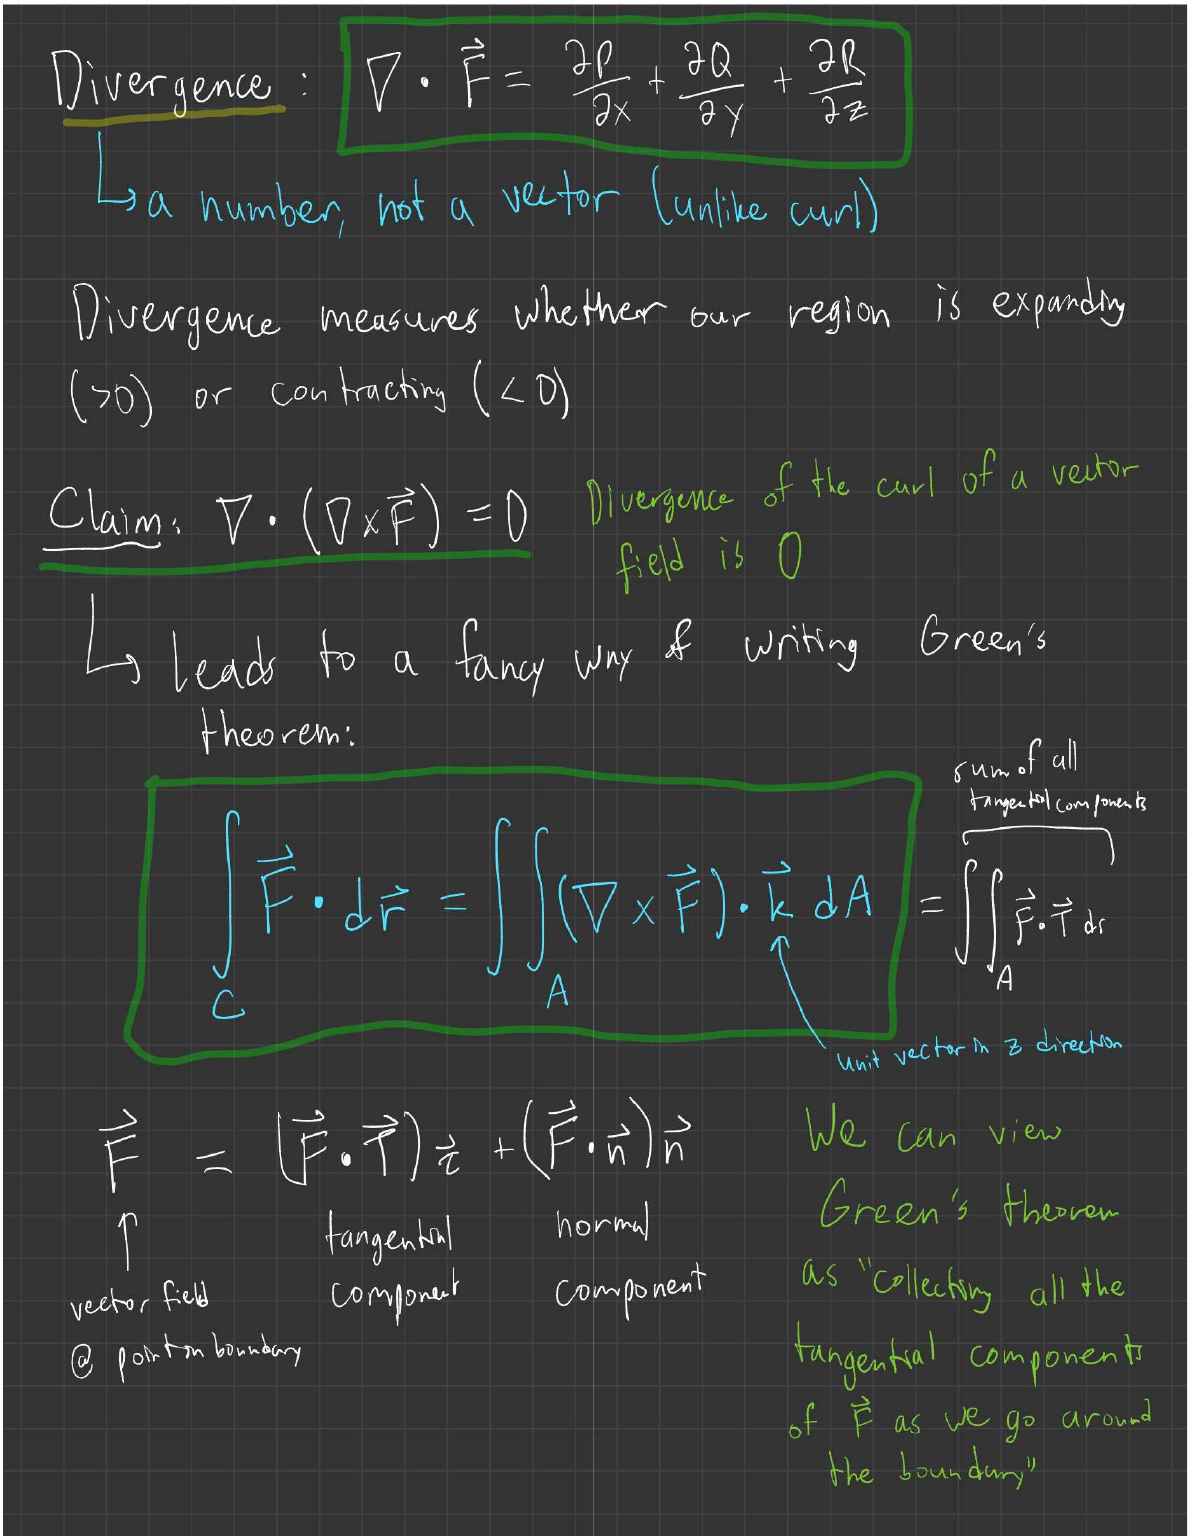 Divergence : ∇ · F⃗ = ∂P/∂x + ∂Q/∂y + ∂R/∂z
↳ a number, not a vector (unlike curl)
Divergence measures whether our region is expanding
(>0) or contracting (<0)
Claim: ∇ · (∇ × F⃗) = 0
Divergence of the curl of a vector
field is 0
↳ leads to a fancy way of writing Green's
theorem:
sum of all
tangential components
∫_C F⃗ · dr⃗ = ∬_A (∇ × F⃗) · k⃗ dA = ∬_A F⃗ · T⃗ ds
unit vector in z direction
F⃗ = (F⃗ · T⃗) τ⃗ + (F⃗ · n⃗) n⃗
↑
vector field
@ point on boundary
tangential
component
normal
component
We can view
Green's theorem
as "collecting all the
tangential components
of F⃗ as we go around
the boundary"